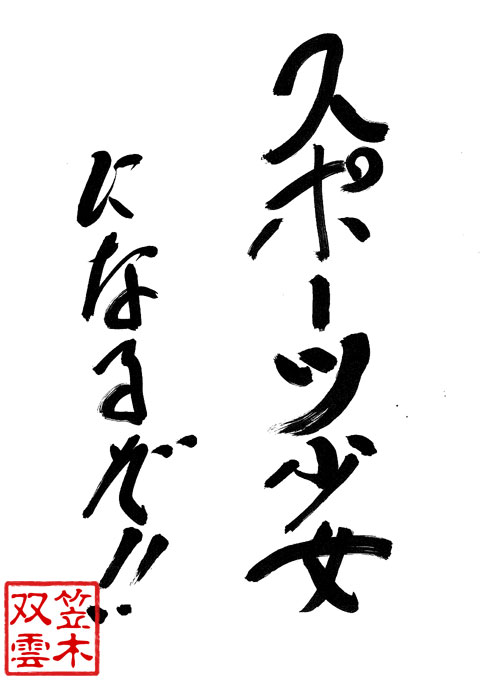 スポーツ少女
になるぞ!!
笠木
双雲